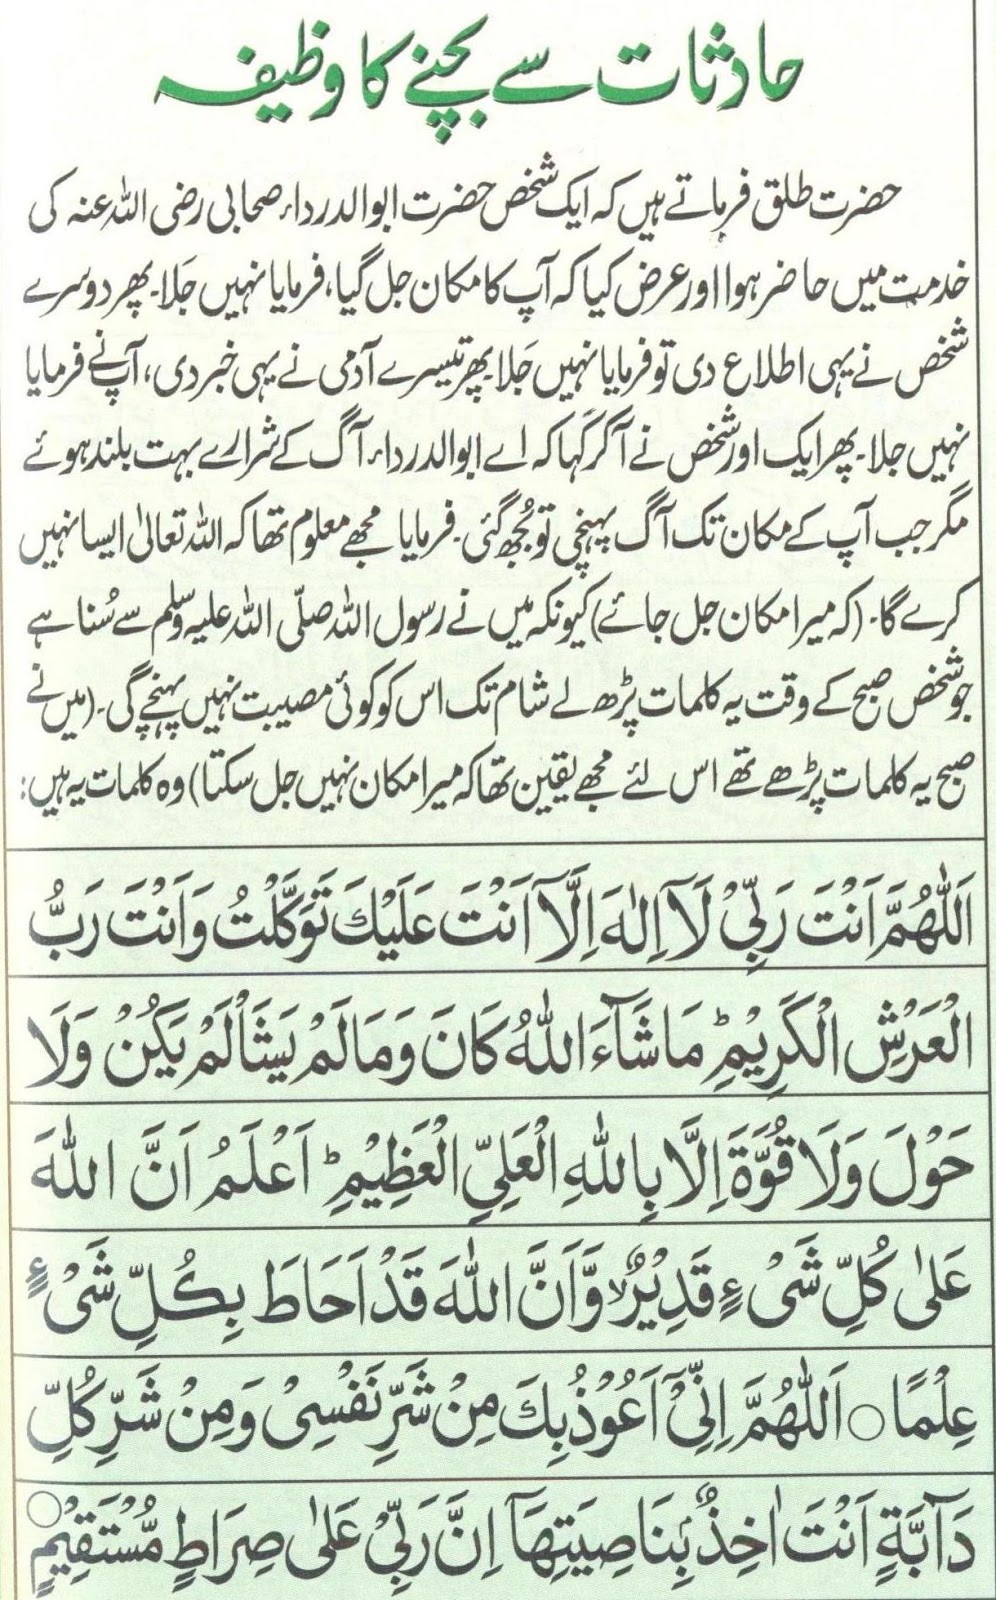 حادثات سے بچنے کا وظیفہ
حضرت طلق فرماتے ہیں کہ ایک شخص حضرت ابوالدرداء صحابی رضی اللہ عنہ کی
خدمت میں حاضر ہوا اور عرض کیا کہ آپ کا مکان جل گیا، فرمایا نہیں جَلا۔ پھر دوسرے
شخص نے یہی اطلاع دی تو فرمایا نہیں جَلا۔ پھر تیسرے آدمی نے یہی خبر دی، آپ نے فرمایا
نہیں جلا۔ پھر ایک اور شخص نے آکر کہا کہ اے ابوالدرداء آگ کے شرارے بہت بلند ہوئے
مگر جب آپ کے مکان تک آگ پہنچی تو بُجھ گئی۔ فرمایا مجھے معلوم تھا کہ اللہ تعالیٰ ایسا نہیں
کرے گا۔ (کہ میرا مکان جل جائے) کیونکہ میں نے رسول اللہ صلّی اللہ علیہ وسلم سے سُنا ہے
جو شخص صبح کے وقت یہ کلمات پڑھ لے شام تک اس کو کوئی مصیبت نہیں پہنچے گی۔ (میں نے
صبح یہ کلمات پڑھے تھے اس لئے مجھے یقین تھا کہ میرا مکان نہیں جل سکتا) وہ کلمات یہ ہیں:
اَللّٰهُمَّ اَنْتَ رَبِّیْ لَآ اِلٰهَ اِلَّآ اَنْتَ عَلَیْكَ تَوَكَّلْتُ وَاَنْتَ رَبُّ
الْعَرْشِ الْكَرِیْمِ ؕ مَاشَآءَ اللّٰهُ كَانَ وَمَالَمْ یَشَأْلَمْ یَكُنْ وَلَا
حَوْلَ وَلَا قُوَّةَ اِلَّا بِاللّٰهِ الْعَلِیِّ الْعَظِیْمِ ؕ اَعْلَمُ اَنَّ اللّٰهَ
عَلٰی كُلِّ شَیْءٍ قَدِیْرٌ ۙ وَّاَنَّ اللّٰهَ قَدْ اَحَاطَ بِكُلِّ شَیْءٍ
عِلْمًا ○ اَللّٰهُمَّ اِنِّیْٓ اَعُوْذُ بِكَ مِنْ شَرِّ نَفْسِیْ وَمِنْ شَرِّ كُلِّ
دَآبَّةٍ اَنْتَ اٰخِذٌۢ بِنَاصِیَتِهَآ اِنَّ رَبِّیْ عَلٰی صِرَاطٍ مُّسْتَقِیْمٍ ○